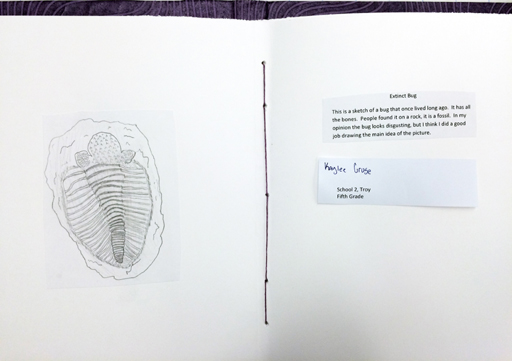 Extinct Bug
This is a sketch of a bug that once lived long ago. It has all
the bones. People found it on a rock, it is a fossil. In my
opinion the bug looks disgusting, but I think I did a good
job drawing the main idea of the picture.
Kaylee Cruse
School 2, Troy
Fifth Grade